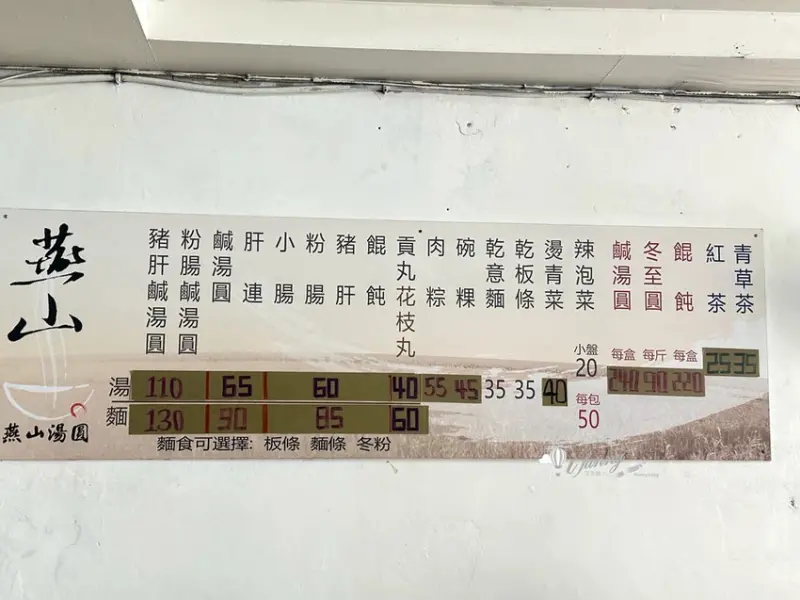 燕山
燕山湯圓
豬肝鹹湯圓
粉腸鹹湯圓
鹹湯圓
肝連
小腸
粉腸
豬肝
餛飩
貢丸花枝丸
肉粽
碗粿
乾意麵
乾板條
燙青菜
辣泡菜
鹹湯圓
冬至圓
餛飩
紅茶
青草茶
湯 110 65 60 40 55 45 35 35 40
小盤 20
每包 50
每盒 每斤 每盒
240 90 220
25 35
麵 130 90 85 60
麵食可選擇: 板條 麵條 冬粉